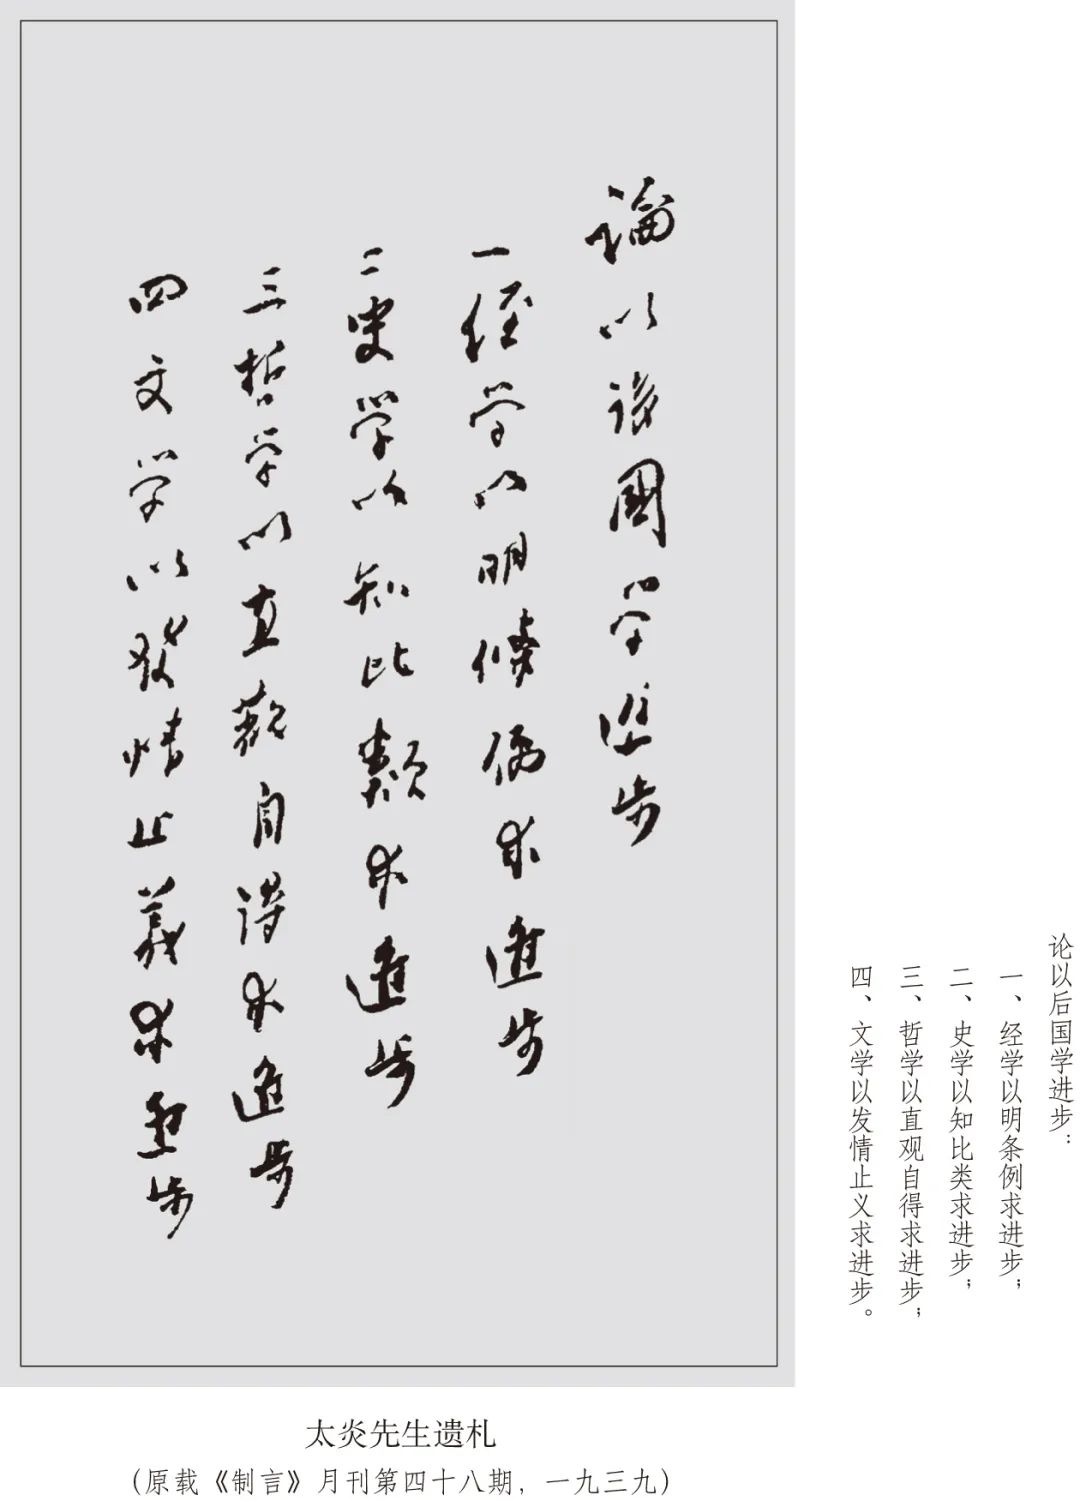 論以後國學進步
一經學以明條例求進步
二史學以知比類求進步
三哲学以直觀自得求進步
四文学以發情止義求進步
论以后国学进步：
一、经学以明条例求进步；
二、史学以知比类求进步；
三、哲学以直观自得求进步；
四、文学以发情止义求进步。
太炎先生遗札
（原载《制言》月刊第四十八期，一九三九）